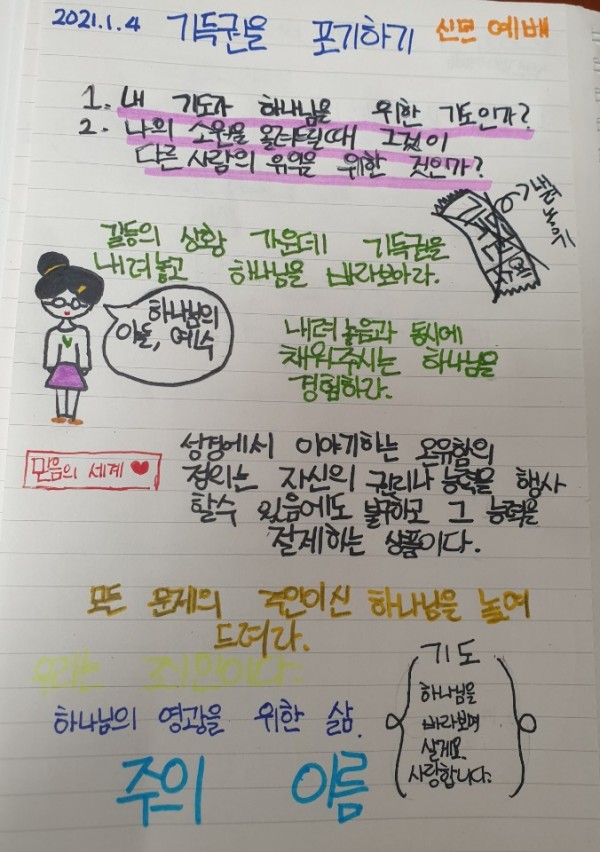 2021.1.4 기득권을 포기하기 신년 예배
1. 내 기도가 하나님을 위한 기도인가?
2. 나의 소원을 올려드릴때 그것이
다른 사람의 유익을 위한 것인가?
갈등의 상황 가운데 기득권을
내려놓고 하나님을 바라보아라.
하나님의
아들, 예수
내려놓음과 동시에
채워주시는 하나님을
경험하라.
믿음의 세계
성경에서 이야기하는 온유함의
정의는 자신의 권리나 능력을 행사
할수 있음에도 불구하고 그 능력을
절제하는 성품이다.
모든 문제의 주인이신 하나님을 높여
드려라.
우리는 죄인이다.
하나님의 영광을 위한 삶.
기도
하나님을
바라보며
살게요.
사랑합니다.
주의 이름